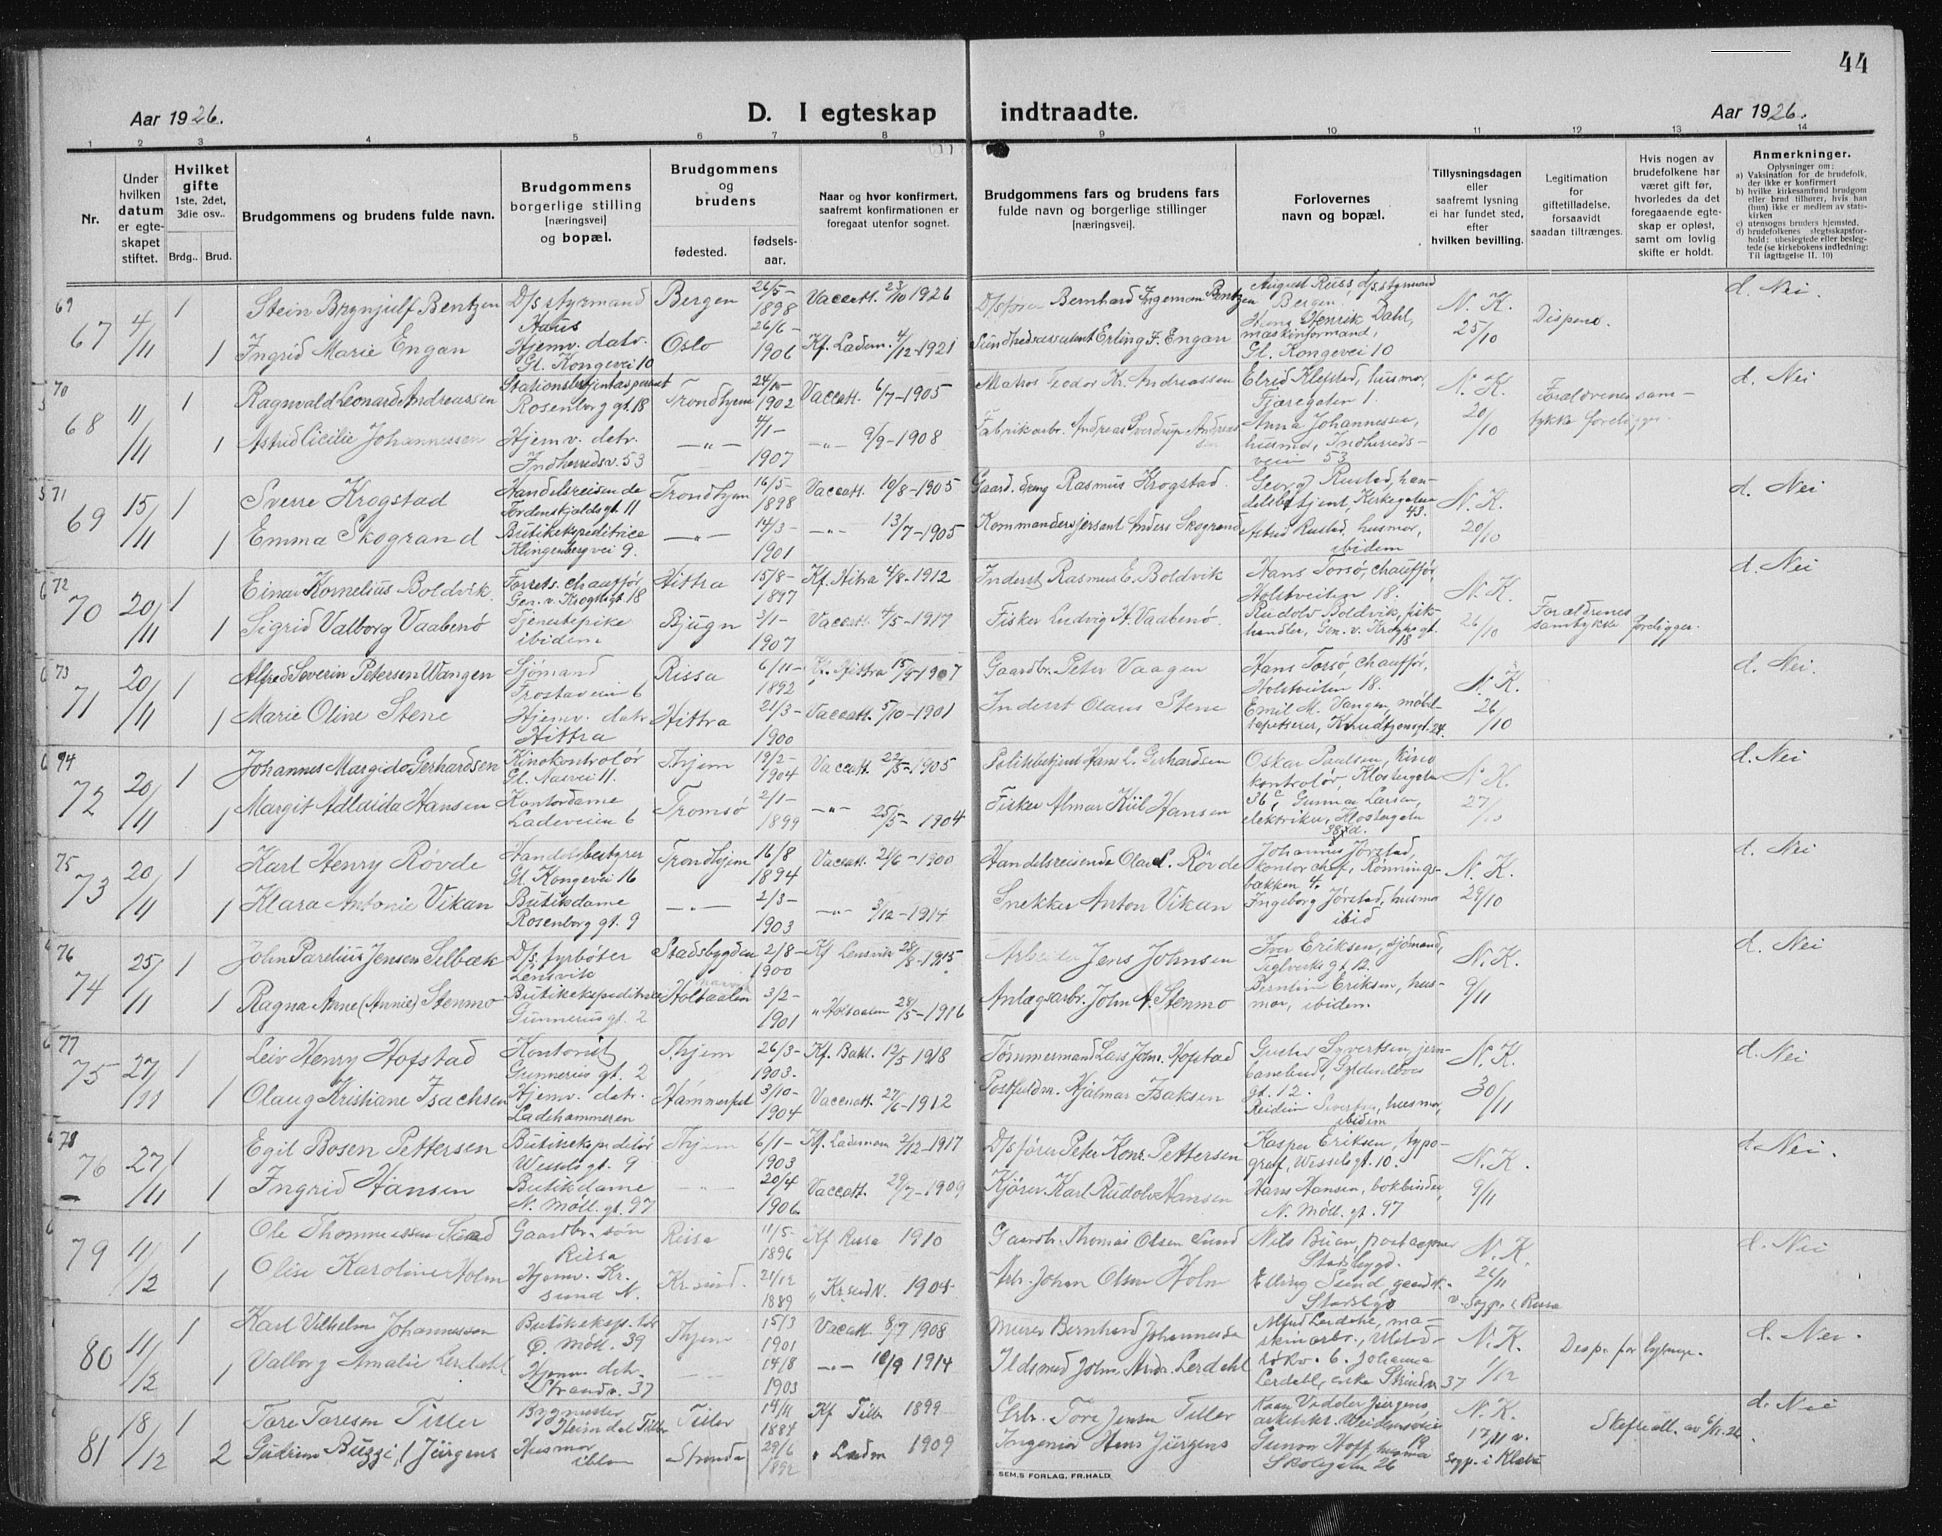 44
Aar 1926.
D. I egteskap indtraadte.
Aar 1926.
1 2 3 4 5 6 7 8 9 10 11 12 13 14
Nr.
Under hvilken datum er egteskapet stiftet.
Hvilket gifte 1ste, 2det, 3die osv..
Brdg.. Brud.
Brudgommens og brudens fulde navn.
Brudgommens borgerlige stilling [næringsvei] og bopæl.
Brudgommens og brudens
fødested.
fødselsaar.
Naar og hvor konfirmert, saafremt konfirmationen er foregaat utenfor sognet.
Brudgommens fars og brudens fars fulde navn og borgerlige stillinger [næringsvei].
Forlovernes navn og bopæl.
Tillysningsdagen eller saafremt lysning ei har fundet sted, efter hvilken bevilling.
Legitimation for giftetilladelse, forsaavidt saadan tiltrænges.
Hvis nogen av brudefolkene har været gift før, hvorledes da det foregaaende egteskap er opløst, samt om lovlig skifte er holdt.
Anmerkninger.
Oplysninger om:
a) Vaksination for de brudefolk, der ikke er konfirmert
b) hvilke kirkesamfund brudgom eller brud tilhører, hvis han (hun) ikke er medlem av statskirken
c) utensogns bruders hjemsted.
d) brudefolkenes slegtsskapsforhold: ubeslegtede eller beslegtede (se kirkebokens indledning: Til iagttagelse II. 10)
69
67 4/11 1 Stein Brynjulf Bentzen D/s styrmand Haus Bergen 26/5-1898 Vaccatt. 23/10 1926 D/sfører Bernhard Ingeman Bentzen August Russ, d/s.styrmand Bergen, N. K. 25/10 Dispens. d. Nei.
1 Ingrid Marie Engan Hjemv. datr. Gl. Kongevei 10 Oslo 26/6-1906 Kf. Ladem. 4/12-1921 Erling F. Engan Hans Henrik Dahl, maskinformand, Gl. Kongevei 10
70
68 11/11 1 Ragnvald Leonard Andreassen Rosenborg gt. 18 Trondhjem 1902 Vaccatt. 6/7-1905 Matros Teodor Kr. Andreassen Elrid Klefsted, husmor, Fjæregaten 1. N. K. 20/10 Forældrenes samtykke foreligger. d. Nei
1 Astrid Cicilie Johannessen Hjemv. datr. Indherredsv. 53 —„— 4/1-1907 —„— 9/9-1908 Fabrikarbr. Andreas Sverdrup Anna Johannessen, husmor, Indherredsveien 53
71
69 15/11 1 Sverre Krogstad Handelsreisende Tordenskjoldsgt. 11 Trondhjem 16/5-1898 Vaccatt. 10/8-1905 Rasmus Krogstad. Georg Rustad, handelsbetjent, Kirkegaten 43. N. K. 20/10 d. Nei
1 Emma Skogrand Butikekspeditrice Klingenbergvei 9. —„— 14/3-1901 —„— 13/7-1905 Kommandersjersant Anders Skogrand Astrid Rustad, husmor, ibidem
72
70 20/11 1 Einar Kornelius Boldvik. Forrets. chauffør, Gen. v. Kroghsgt. 18 Hittra 15/8-1897 Kf. Hitra 4/8-1912 Inderst Rasmus E. Boldvik Hans Torsø, chauffør, Holstveiten 18. N. K. 26/10 Forældrenes samtykke foreligger. d. Nei
1 Sigrid Valborg Vaabenø Tjenestepike ibidem Bjugn 3/1-1907 Vaccatt. 4/5-1917 Fisker Ludvig H. Vaabenø. Rudolv Boldvik, fiskhandler, Gen. v. Kroghs gt. 18
73
71 20/11 1 Alfred Severin Petersen Wangen Sjømand Frostaveien 6 Rissa 6/11-1892 Kf. Hittra 15/9-1907 Gaardbr. Peter Vaagen Hans Torsø, chauffør, Holstveiten 18. N. K. 26/10 d. Nei.
1 Marie Oline Stene Hjemv. datr. Hittra Hittra 21/3-1900 Vaccatt. 5/10-1901 Inderst Olaus Stene Emil M. Vangen, møbeltapetserer, Knudtzonsgt. 24.
94
72 20/11 1 Johannes Margido Gerhardsen Kinokontrolør Gl. Aasvei 11. Thjem 19/2-1904 Vaccatt. 22/5-1905 Politibetjent Hans L. Gerhardsen Oskar Paulsen, kinokontrolør, Klostergaten 36 c, N. K. 27/10 d. Nei
1 Margit Adlaida Hansen Kontordame Ladeveien 6 Tromsø 2/1-1899 —„— 25/5-1904 Fisker Almar Kiil Hansen Gunnar Larsen, elektriker, Klostergaten 38 d.
75
73 20/11 1 Karl Henry Røvde Handelsbestyrer Gl. Kongevei 16 Trondhjem 16/8 1894 Vaccatt. 21/6-1900 Handelsreisende Olav L. Røvde Johannes Jørstad, kontorchef, Rønningsbakken 4. N. K. 29/10 d. Nei
1 Klara Antonie Vikan Butikdame Rosenborg gt. 9 —„— 2/3-1903 —„— 3/12-1914 Snekker Anton Vikan Ingeborg Jørstad, husmor ibid
76
74 25/11 1 John Parelius Jensen Selbæk D/s. fyrbøter Lensvik Stadsbygden 2/8-1900 Kf Lensvik 28/8-1915 Arbeider Jens Johnsen Iver Eriksen, sjømand, Teglverks gt. 12. N. K. 9/11 d. Nei
1 Ragna Anne (Annie) Stenmo Butikekspeditrice Gunnerius gt. 2 Holtaalen 3/2-1901 „ Holtaalen 28/5-1916 Anlægsarbr. John A. Stenmo Berntine Eriksen, husmor, ibidem.
77
75 27/11 1 Leiv Henry Hofstad Kontorist Gunnerius gt. 2 Thjem 26/3-1903. Kf. Bakl. 12/5 1918 Tømmermand Lars Johs. Hofstad Gustav Syvertsen, jernbanebud, Gyldenløves gt. 12. N. K. 30/11 d. Nei
1 Olaug Kristiane Isachsen Hjemv. datr. Ladehammeren Hammerfest 3/10-1904 Vaccatt. 27/6-1912 Postfuldm. Hjalmar Isaksen husmor, ibidem
78
76 27/11 1 Egil Bosen Pettersen Butikekspeditør Wessels gt. 9 Thjem 6/1-1903 Kf. Lademoen 2/12-1917 D/sfører Peter Konr. Pettersen Kasper Eriksen, typograf, Wesselsgt. 10. N. K. 9/11 d. Nei.
1 Ingrid Hansen Butikdame N. Møll. gt. 97 —„— 20/4 1906 Vaccatt. 29/7-1909 Kjører Karl Rudolv Hansen Hans Hansen, bokbinder, N. Møll. gt. 97
79 11/12 1 Ole Thommassen Sund Gaardbr. søn Rissa Rissa 11/5-1896 Kf Rissa 1910 Gaardbr. Thomas Olsen Sund Nils Buan, postaapner Stadsbygd. N. K. 26/11 v. Sogp. i Rissa d. Nei
1 Olise Karoline Holm Hjemv. Kr.sund N. Kr.sund. 21/12 1889 „ Kr.sund N. 1904 Arb. Johan Olsen Holm Elling Sund, gaardbr. Stadsbygd
80 11/12 1 Karl Vilhelm Johannessen Ø. Møll. 39 Thjem 15/3 1901 Vacatt 8/7 1908 Murer Bernhard Johannessen Alfred Lerdahl, maskinarbr., N. K. 1/12 d. Nei.
1 Valborg Amalie Lerdahl Hjemv. datr. Strandv. 37 —„— 14/8 1903 —„— 10/9 1914 Ildsmed Johs. Lerdahl Johanna Lerdahl, 37
81 18/12 Tore Toresen Tiller Bygmester Heimdal Tiller Tiller 19/11 1884 Kf Tiller 1899 Tore Jensen Tiller Jürgens, arkitekt N. K. 17/11 v. Sogp. i Klæbu d. Nei
2 Gudrun Buzzi, f. Jürgens Husmor ibidem Strinda 29/6 1892 „ Ladem 1909 Ingeniør Hans Jürgens Gunvor Hoff, husmor Skolegaten 26
E. SEM.S FORLAG, FR.HALD